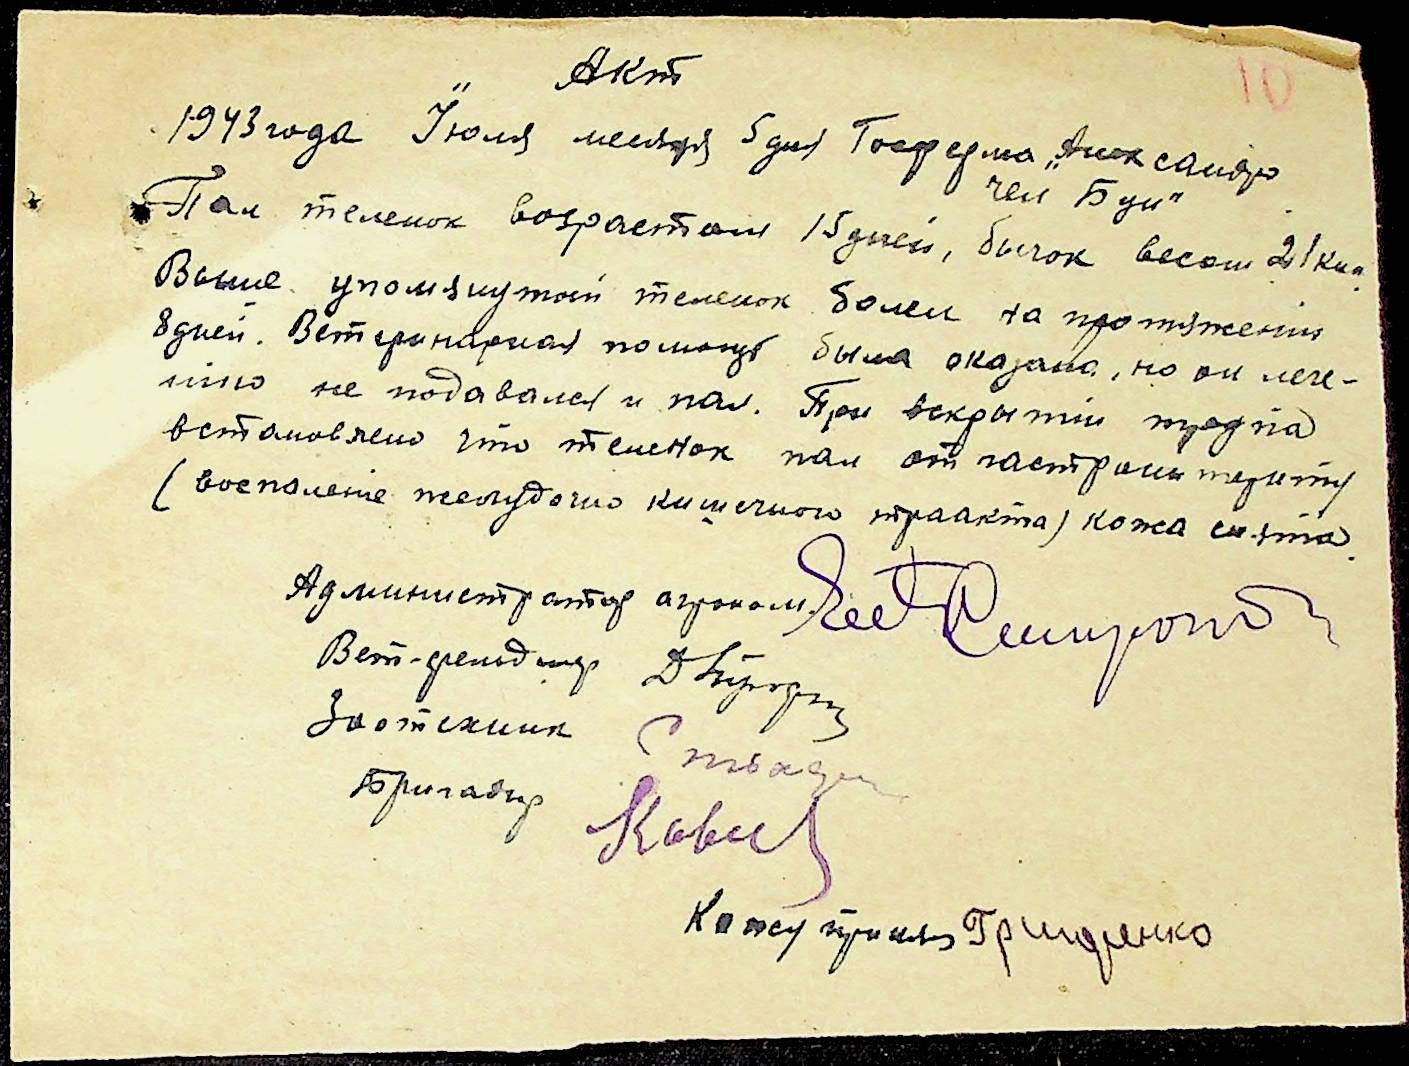 10
Акт
1943 года Июля месяця 5 дня Госферма „Александро
чем Бун"
Пал теленок возрастом 15 дней, бычок весом 21 кил.
Выше упомянутой теленок болел на протяжении
8 дней. Ветеринарная помощь была оказана, но он лече-
нию не подавался и пал. При вскрытии трупа
встановлено что теленок пал от гастроентериту
(воспаление желудочно кишечного траакта) кожа снята.
Администратор агроном
Вет-фельдшер
Зоотехник
Бригадир
Кожу принял Грищенко